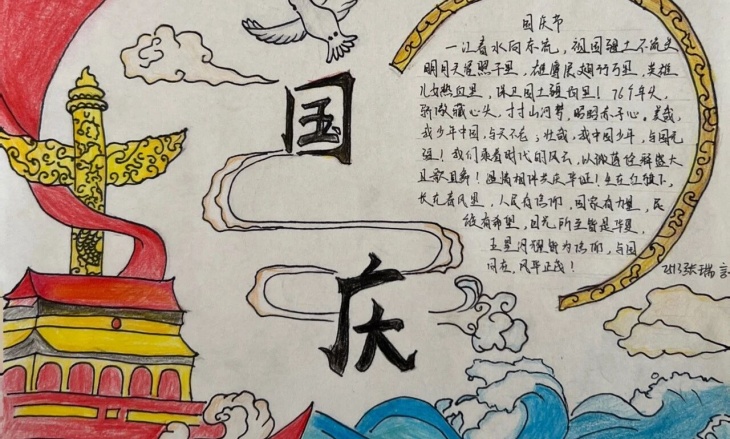 国
庆
国庆节
一江春水向东流，祖国疆土不流失
明月天涯照千里，雄鹰展翅行万里，英雄
儿女热血里，保卫国土疆里！76个年头，
骄傲藏心头，寸寸山河梦，昭昭赤子心。美哉，
我少年中国，与天不老；壮哉，我中国少年，与国无
疆！我们乘着时代的风云，以微薄诠释盛大
且歌且舞！相拥共庆华诞！生在红旗下，
长在春风里，人民有信仰，国家有力量，民
族有希望，目光所至皆是华夏，
五星闪耀皆为信仰，与国
同在，风华正茂！
张瑞